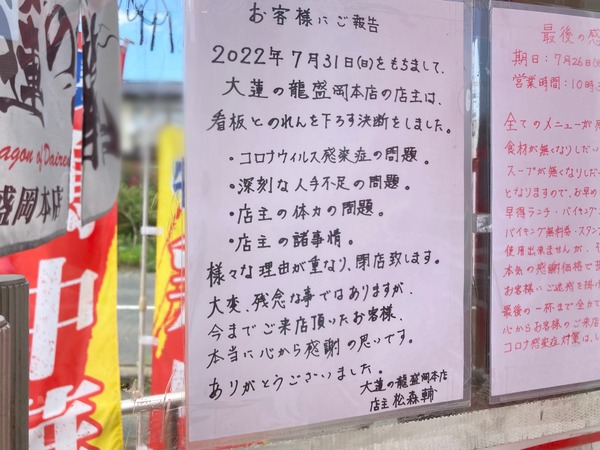 お客様にご報告
2022年7月31日(日)をもちまして、
大蓮の龍盛岡本店の店主は、
看板とのれんを下ろす決断をしました。
・コロナウィルス感染症の問題。
・深刻な人手不足の問題。
・店主の体力の問題。
・店主の諸事情。
様々な理由が重なり、閉店致します。
大変、残念な事ではありますが、
今までご来店頂いたお客様、
本当に心から感謝の思いです。
ありがとうございました。
大蓮の龍盛岡本店
店主 松森輔
最後の感
期日：7月26日(
営業時間：10時3
全てのメニューが
食材が無くなりしだい
スープが無くなりしだ
となりますので、お早め
早得ランチ・バイキング
バイキング無料券・スタン
使用出来ませんが、そ
本気の感謝価格で
お客様にご迷惑を掛け
最後の一杯まで全力で
心からお客様のご来店
コロナ感染症対策は、し
蓮の
agon of Daire
盛岡本店
中華